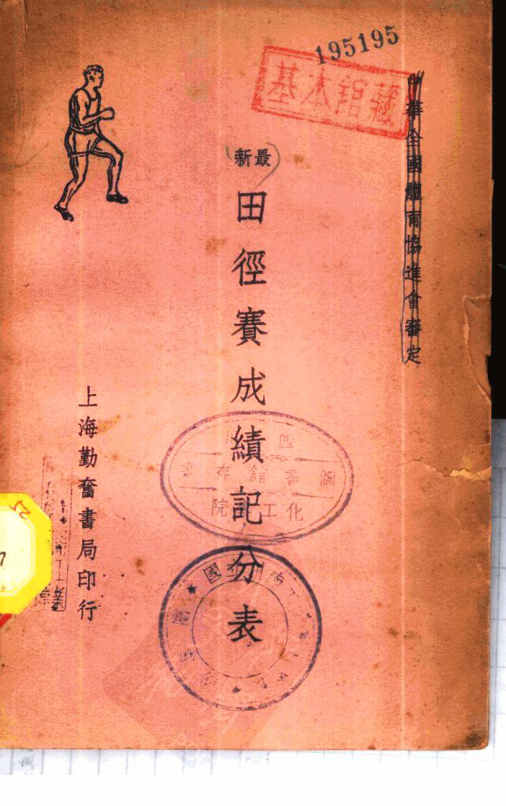 195195
基本館藏
中華全國體育協進會審定
最新
田徑賽成績記分表
上海勤奮書局印行
化工
院
國
7